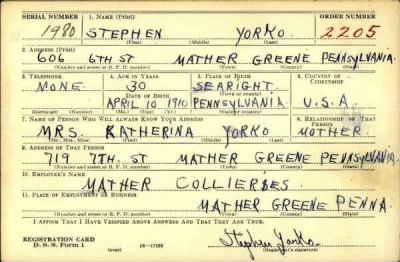 SERIAL NUMBER 1. NAME (Print) ORDER NUMBER
1980 STEPHEN YORKO 2205
(First) (Middle) (Last)
2. ADDRESS (Print)
606 6TH ST MATHER GREENE PENNSYLVANIA
(Number and street or R. F. D. number) (Town) (County) (State)
3. TELEPHONE 4. AGE IN YEARS 5. PLACE OF BIRTH 6. COUNTRY OF CITIZENSHIP
NONE 30 SEARIGHT
DATE OF BIRTH (Town or county)
APRIL 10 1910 PENNSYLVANIA U.S.A.
(Exchange) (Number) (Mo.) (Day) (Yr.) (State or country)
7. NAME OF PERSON WHO WILL ALWAYS KNOW YOUR ADDRESS 8. RELATIONSHIP OF THAT PERSON
MRS. KATHERINA YORKO MOTHER
(Mr., Mrs., Miss) (First) (Middle) (Last)
9. ADDRESS OF THAT PERSON
719 7TH. ST MATHER GREENE PENNSYLVANIA
(Number and street or R. F. D. number) (Town) (County) (State)
10. EMPLOYER'S NAME
MATHER COLLIERIES
11. PLACE OF EMPLOYMENT OR BUSINESS
MATHER GREENE PENNA
(Number and street or R. F. D. number) (Town) (County) (State)
I AFFIRM THAT I HAVE VERIFIED ABOVE ANSWERS AND THAT THEY ARE TRUE.
REGISTRATION CARD
D. S. S. Form 1 16—17105 Stephen Yorko
(Registrant's signature)